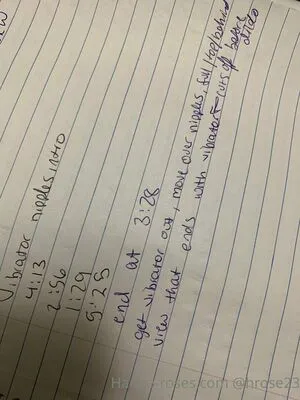 Vibrator nipples, intro
4:13
2:56
1:29
5:25
end at 3:28
get vibrator out, move over nipples, full/top/behind
view that ends with vibrator - cuts off before
dildo
roses.com @hrose23